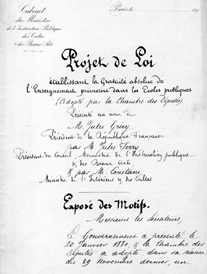 Cabinet
du Ministre
de l'Instruction Publique
des Cultes
et des Beaux Arts
Projet de Loi
établissant la Gratuité absolue de
l'Enseignement primaire dans les Écoles publiques
(adopté par la Chambre des Députés)
Présenté au nom de
M. Jules Grévy
Président de la République Française
par M. Jules Ferry
Président du Conseil, Ministre de l'Instruction publique
et des Beaux Arts
& par M. Constans
Ministre de l'Intérieur & des Cultes
Exposé des Motifs.
Messieurs les Sénateurs,
Le Gouvernement a présenté le
20 Janvier 1880 à la Chambre des
Députés & adopté dans sa séance
du 29 Novembre dernier, un